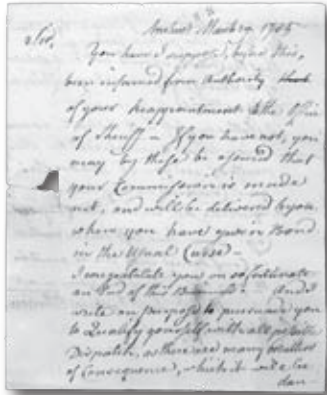 Sir,
You have I suppose, before this,
been informed from Authority
of your Reappointment to the Office
of Sheriff. If you have not, you
may by these be assured that
your Commission is made
out, and will be delivered to you
when you have given Bond
in the Usual Course —
I congratulate you on so fortunate
an End of this Business. And
write on purpose to persuade you
to Qualify yourself with all possible
Dispatch, as there are many Matters
of Consequence, which